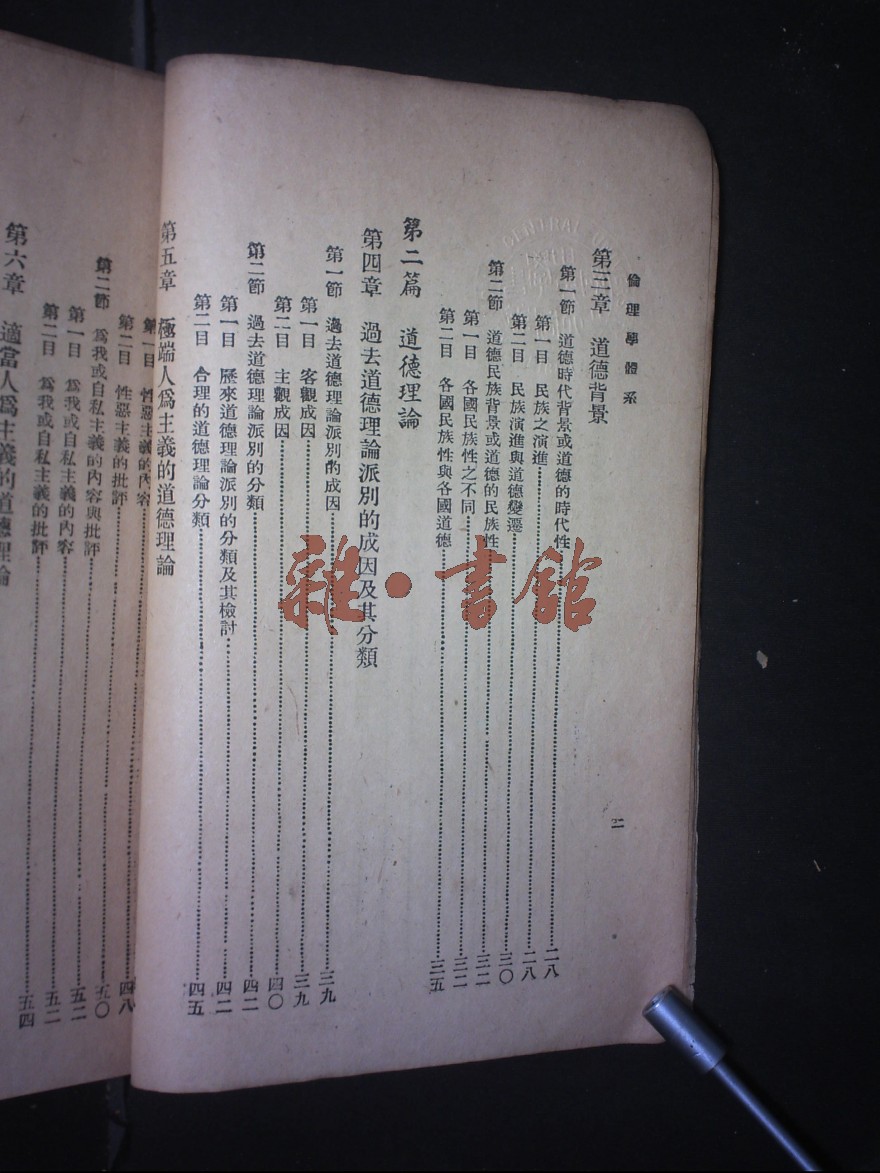 倫理學體系
第三章 道德背景
第一節 道德時代背景或道德的時代性
第一目 民族之演進……二八
第二目 民族演進與道德變遷……三〇
第二節 道德民族背景或道德的民族性……三二
第一目 各國民族性之不同……三二
第二目 各國民族性與各國道德……三五
第二篇 道德理論
第四章 過去道德理論派別的成因及其分類
第一節 過去道德理論派別的成因……三九
第一目 客觀成因……三九
第二目 主觀成因……四〇
第二節 過去道德理論的分類……四二
第一目 歷來道德理論派別的分類及其檢討……四二
第二目 合理的道德理論分類……四五
二
第五章 極端人爲主義的道德理論
第一目 性惡主義的內容
第二目 性惡主義的批評……四八
第二節 爲我或自私主義的內容與批評……五〇
第一目 爲我或自私主義的內容……五二
第二目 爲我或自私主義的批評……五二
第六章 適當人爲主義的道德理論……五四
雜·書館